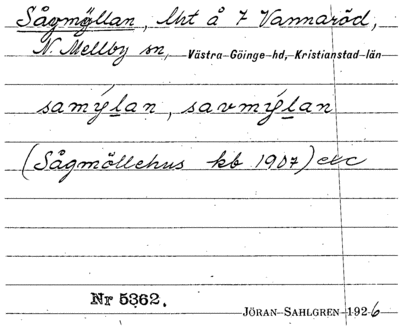 Sågmyllan, lht å 7 Vannaröd,
N. Mellby sn, Västra Göinge hd, Kristianstad län
samýlan, savmýlan
(Sågmöllehus kb 1907) etc
Nr 5362.
JÖRAN SAHLGREN 1926